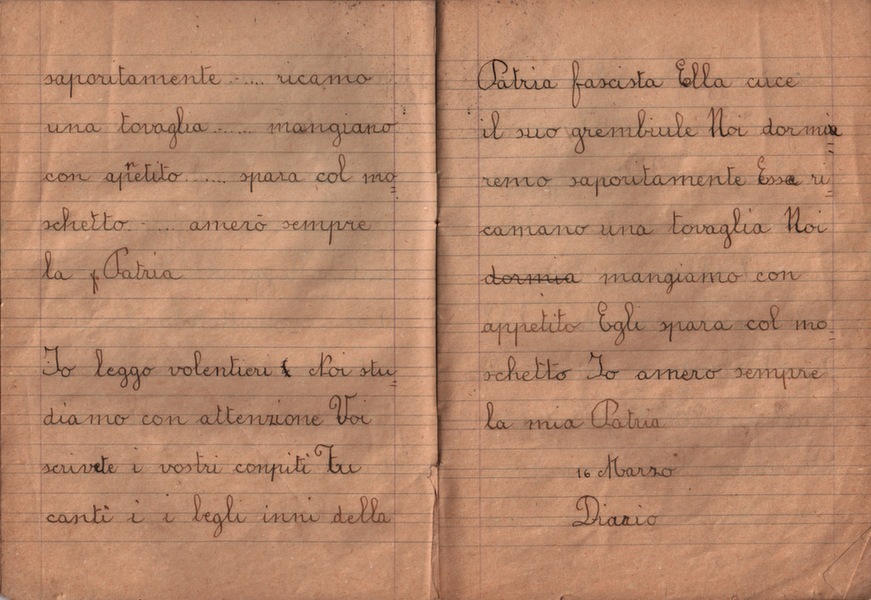 saporitamente ..... ricamo
una tovaglia ...... mangiano
con appetito ...... spara col mo=
schetto ..... amerò sempre
la Patria
Io leggo volentieri Noi stu=
diamo con attenzione Voi
scrivete i vostri conpiti Tu
canti i i begli inni della
Patria fascista Ella cuce
il suo grembiule Noi dormi=
remo saporitamente Esse ri=
camano una tovaglia Noi
dormia mangiamo con
appetito Egli spara col mo=
schetto Io amero sempre
la mia Patria
16 Marzo
Diario